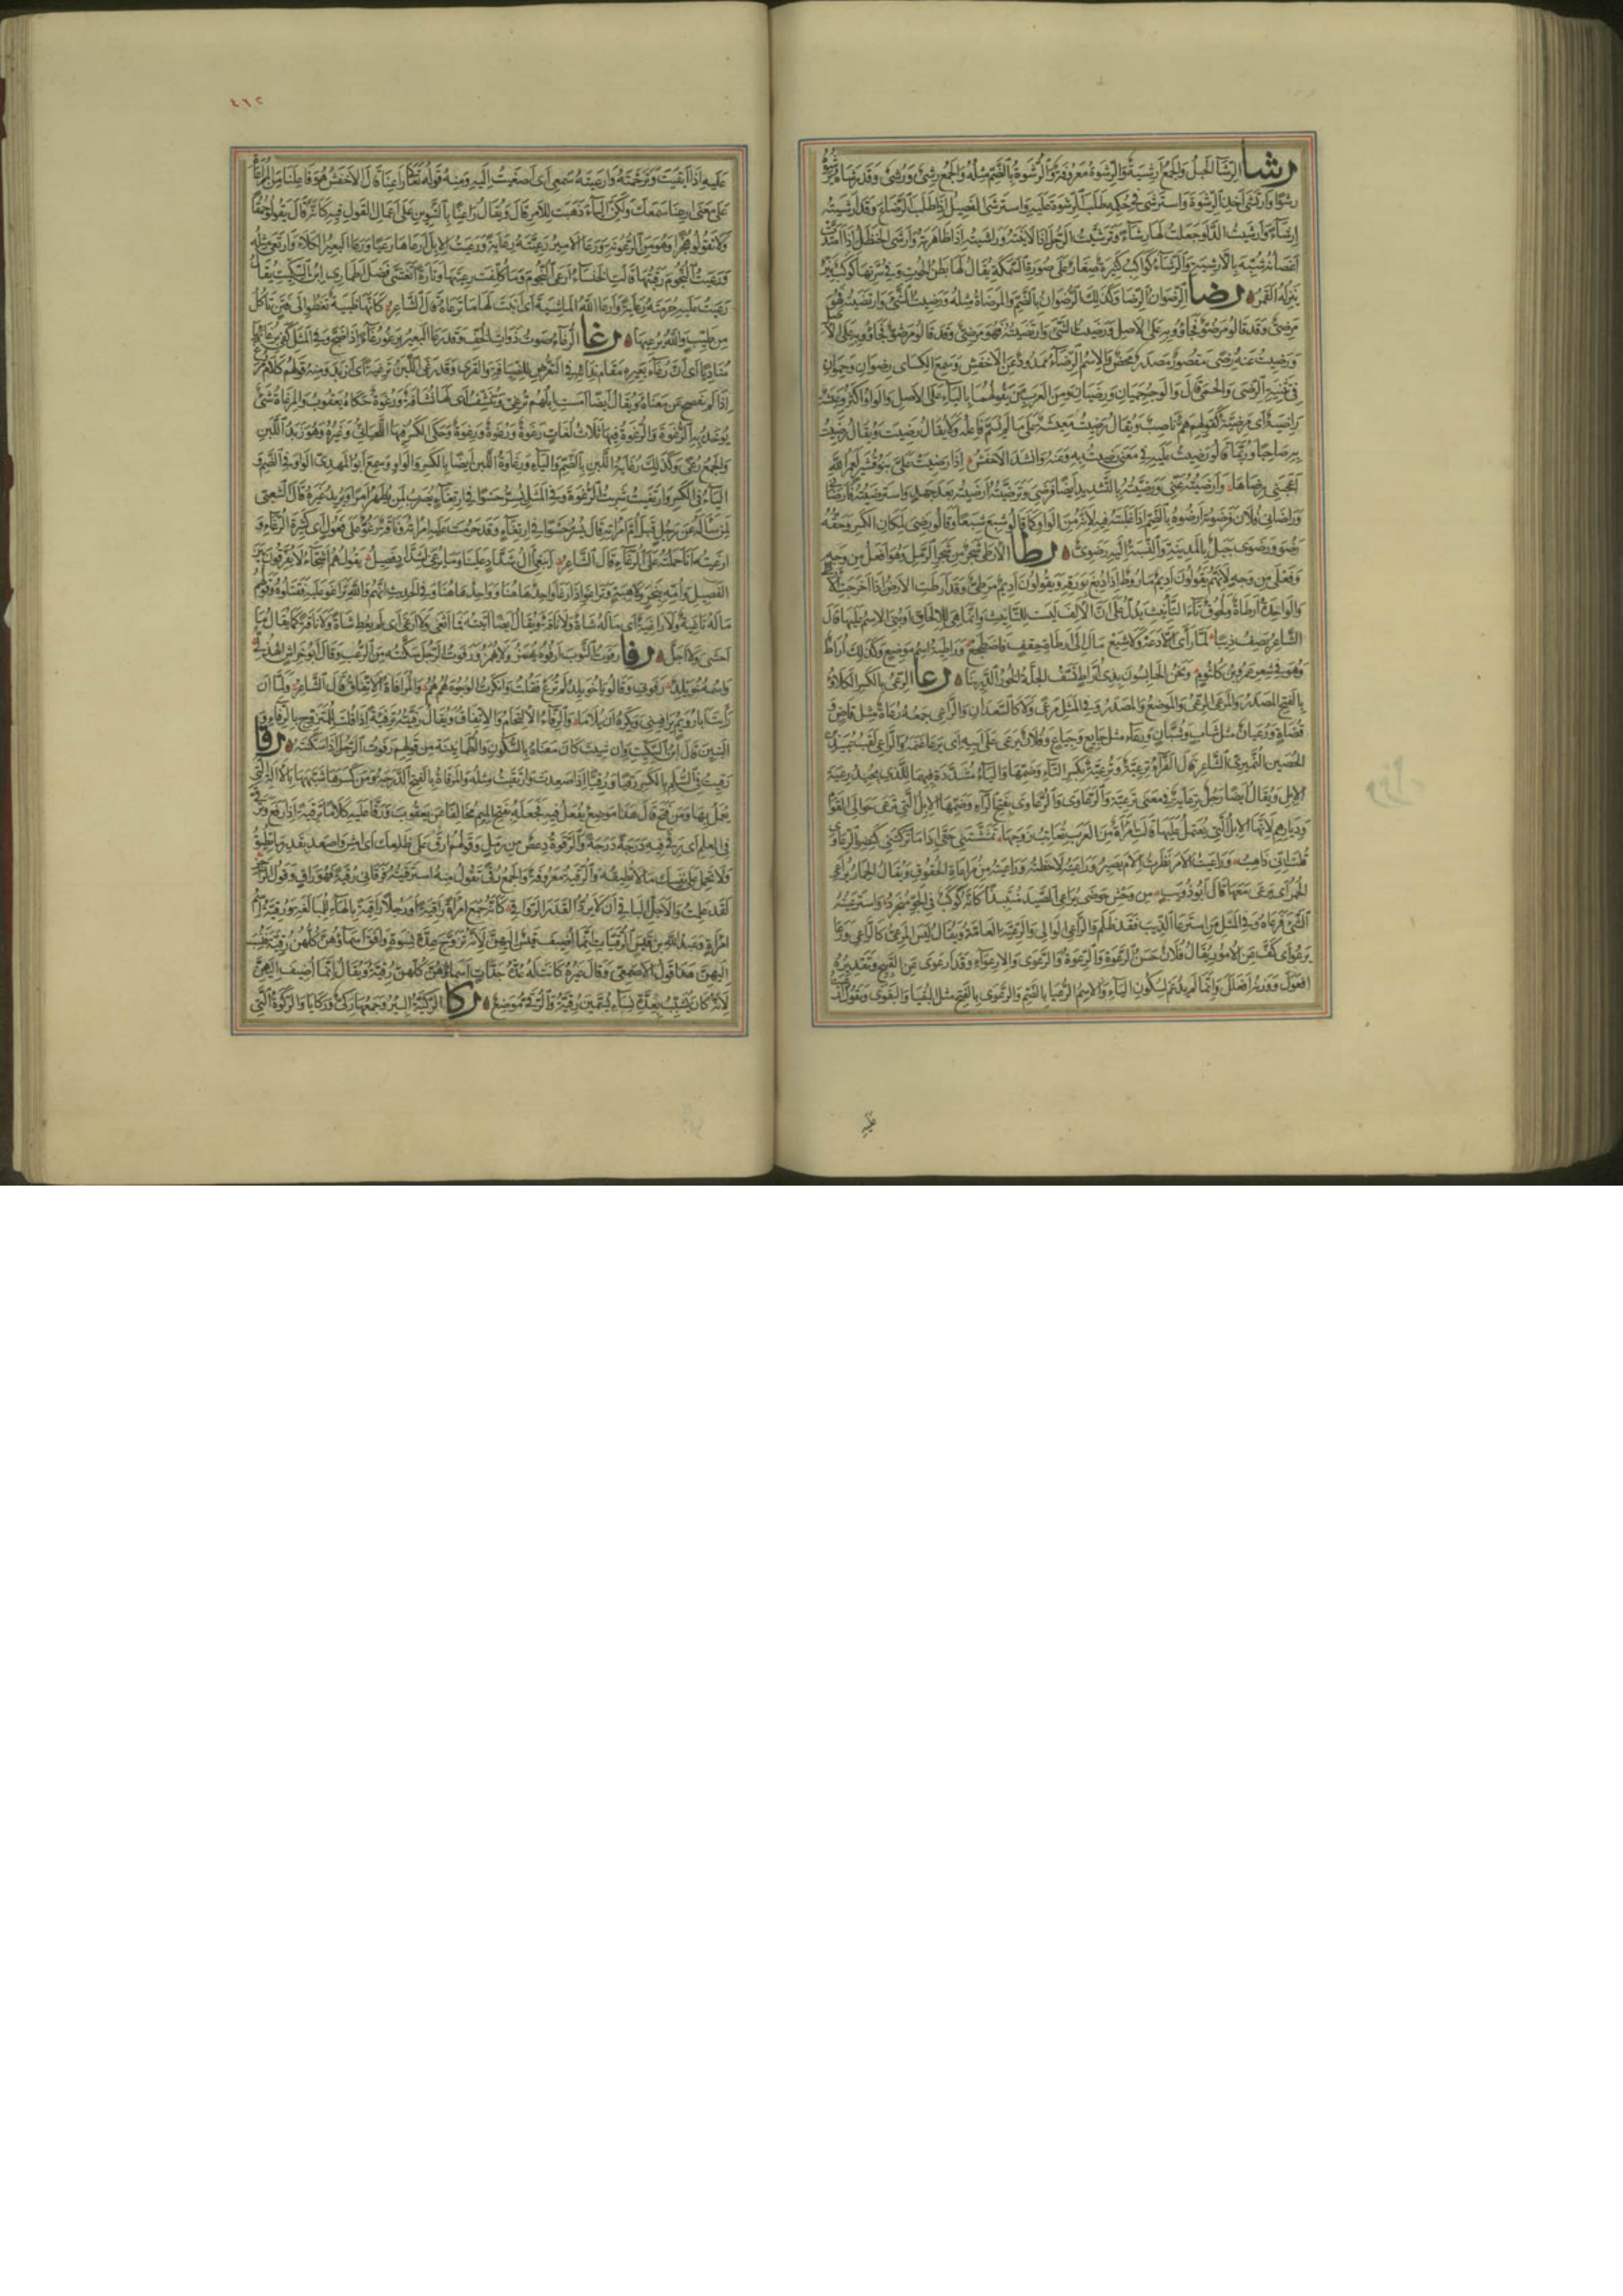 رشا الرشاء الحبل والجمع أرشية والرشوة معروفة والرشوة بالضم مثله والجمع رشى ورشى وقد رشاه يرشوه
رشوا وارتشى أخذ الرشوة واسترشى في حكمه طلب الرشوة عليه واسترشى الفصيل إذا طلب الرضاع وقد أرشيته
إرشاء وأرشيت الدلو جعلت لها رشاء وترشيت الرجل إذا لاينته وراشيته إذا ظاهرته وأرشى الحنظل إذا امتدت
أغصانه شبه بالأرشية والرشاء كواكب كثيرة صغار على صورة السمكة يقال لها بطن الحوت وفي سرتها كوكب نير
ينزله القمر رضا الرضوان الرضا وكذلك الرضوان بالضم والمرضاة مثله ورضيت الشيء وارتضيته فهو
مرضي وقد قالوا مرضو فجاؤوا به على الأصل
ورضيت عنه رضى مقصور مصدر محض والاسم الرضاء ممدود عن الأخفش وسمع الكسائي رضوان وحموان
في تثنية الرضى والحمى قال والوجه حميان ورضيان ومن العرب من يقولهما بالياء على الأصل والواو أكثر وعيشة
راضية أي مرضية كقولهم هم ناصب ويقال رضيت معيشته على ما لم يسم فاعله ولا يقال رضيت ويقال رضيت
به صاحبا وربما قالوا رضيت عليه في معنى رضيت به وعنه وأنشد الأخفش إذا رضيت علي بنو قشير لعمر الله
أعجبني رضاها وأرضيته عني ورضيته بالتشديد أيضا فرضي وترضيته أرضيته بعد جهد واسترضيته فأرضاني
وراضاني فلان فرضوته أرضوه بالضم إذا غلبته فيه لأنه من الواو
رضو ورضوى جبل بالمدينة والنسبة إليه رضوي رطا الأرطى شجر من شجر الرمل وهو أفعل من وجه
وفعلى من وجه لأنهم يقولون أديم مأروط إذا دبغ بورقه ويقولون أديم مرطي وقد أرطت الأرض إذا أخرجت
والواحدة أرطاة ولحوق تاء التأنيث يدل على أن الألف ليست للتأنيث وإنما هي للإلحاق أو بني الاسم عليها قال
الشاعر يصف ذئبا لما رأى أن لا دعه ولا شبع مال إلى أرطاة حقف فاضطجع وراطية اسم موضع وكذلك أراط
وهو في شعر عمرو بن كلثوم ونحن الحابسون بذي أراط تسف الجلة الخور الدرينا رعا الرعي بالكسر الكلأ
بالفتح المصدر والمرعى الرعي والموضع والمصدر وفي المثل مرعى ولا كالسعدان والراعي جمعه رعاة مثل قاض
قضاة ورعيان مثل شاب وشبان ورعاء مثل جائع وجياع وفلان يرعى على أبيه أي يرعى غنمه والراعي لقب عبيد بن
الحصين النميري الشاعر
الإبل ويقال أيضا رجل ترعاية في معنى ترعية والرعاوى والرعاوى بفتح الراء وضمها الإبل التي ترعى حوالي القوم
وديارهم لأنها الإبل التي يعتمل عليها قالت امرأة من العرب تعاتب زوجها تمششتني حتى إذا ما تركتني كنضو الرعاوى
قلت إني ذاهب وراعيت الأمر نظرت إلام يصير وراعيته لاحظته وراعيته من مراعاة الحقوق ويقال الحمار يراعي
الحمر أي يرعى معها قال أبو ذؤيب من وحش حوضى يراعي الصيد منتبذا كأنه كوكب في الجو منجرد واسترعيته
الشيء فرعاه وفي المثل من استرعى الذئب فقد ظلم والراعي الوالي والرعية العامة ويقال ليس المرعي كالراعي ورعا
يرعو أي كف عن الأمور يقال فلان حسن الرعوة والرعوة والرعوى والارعواء وقد ارعوى عن القبيح وتقديره
افعول ووزنه افعلل وإنما لم يدغم لسكون الياء والاسم الرعيا بالضم والرعوى بالفتح مثل البقيا والبقوى
عليه
٤٦٢
عليه إذا أبقيت وترحمته وأرعيته سمعي أي أصغيت إليه ومنه قوله تعالى راعنا قال الأخفش هو فاعلنا من المراعاة
على معنى أرعنا سمعك ولكن الياء ذهبت للأمر قال ويقال راعنا بالتنوين على إعمال القول فيه كأنه قال لا تقولوا حمقا
ولا تقولوا هجرا وهو من الرعونة ورعى الأمير رعيته رعاية ورعيت الإبل أرعاها رعيا ورعى البعير الكلأ وارتعى مثله
ورعيت النجوم رقبتها قالت الخنساء أرعى النجوم وما كلفت رعيتها وتارة أتغشى فضل أطماري ابن السكيت يقال
رعيت عليه حرمته رعاية وأرعى الله الماشية أي أنبت لها ما ترعاه قال الشاعر كأنها ظبية تعطو إلى فنن تأكل
من طيب والله يرعيها رغا الرغاء صوت ذوات الخف وقد رغا البعير يرغو رغاء إذا ضج وفي المثل كفى برغائها
مناديا أي أن رغاء بعيره مقام ندائه في التعرض للضيافة والقرى وقد رغى اللبن ترغية أي أزبد ومنه قولهم كلام مرغ
إذا لم يفصح عن معناه ويقال أيضا أمست إبلهم ترغي وتنشف أي لها نشافة ورغوة حكاه يعقوب والمرغاة شيء
يؤخذ به الرغوة والرغوة فيها ثلاث لغات رغوة ورغوة ورغوة وحكى الكسر فيها اللحياني وغيره وهو زبد اللبن
والجمع رغى وكذلك رغاية اللبن بالضم والياء ورغاوة اللبن أيضا بالكسر والواو وسمع أبو المهدي الواو في الضم و
الياء في الكسر وارتغيت شربت الرغوة وفي المثل يسر حسوا في ارتغاء يضرب لمن يظهر أمرا ويريد غيره قال الشعبي
لمن سأله عن رجل قبل أم امرأته قال يسر حسوا في ارتغاء وقد حرمت عليه امرأته وناقة رغو على فعول أي كثيرة الرغاء و
أرغيته أنا حملته على الرغاء قال الشاعر أيبغي آل شداد علينا وما يرغى لشداد فصيل يقول هم أشحاء لا يفرقون بين
الفصيل وأمه بنحر ولا هبة وتراغوا إذا رغا واحد هاهنا وواحد هاهنا وفي الحديث إنهم والله تراغوا عليه فقتلوه وقولهم
ما له ثاغية ولا راغية أي ما له شاة ولا ناقة ويقال أيضا أتيته فما أثغى ولا أرغى أي لم يعط شاة ولا ناقة كما يقال ما
أحشى ولا أجل رفا رفوت الثوب أرفوه يهمز ولا يهمز ورفوت الرجل سكنته من الرعب وقال أبو خراش الهذلي
واسمه خويلد رفوني وقالوا يا خويلد لم ترع فقلت وأنكرت الوجوه هم هم والمرافاة الاتفاق قال الشاعر ولما أن
رأيت أبا رويم يرافيني ويكره أن يلاما والرفاء الالتحام والاتفاق ويقال رفيته ترفية إذا قلت للمتزوج بالرفاء و
البنين قال ابن السكيت وإن شئت كان معناه بالسكون والطمأنينة من قولهم رفوت الرجل إذا سكنته رقا
رقيت في السلم بالكسر رقيا ورقيا إذا صعدت وارتقيت مثله والمرقاة بالفتح الدرجة ومن كسرها شبهها بالآلة التي
يعمل بها ومن فتح قال هذا موضع يفعل فيه فجعله بفتح الميم مخالفا عن يعقوب ورقى عليه كلاما ترقية إذا رفع وترقى
في العلم أي رقي فيه درجة درجة والرقوة دعص من رمل وقولهم ارق على ظلعك أي امش واصعد بقدر ما تطيق
ولا تحمل على نفسك ما لا تطيقه والرقية معروفة والجمع رقى تقول منه استرقيته فرقاني رقية فهو راق وقول الراجز
لقد علمت والأجل الباقي أن لا يرد القدر الرواقي كأنه جمع امرأة راقية أو رجلا راقية بالهاء للمبالغة ورقية اسم
امرأة وعبد الله بن قيس الرقيات إنما أضيف قيس إليهن لأنه تزوج عدة نسوة وافق أسماؤهن كلهن رقية فنسب
إليهن هذا قول الأصمعي وقال غيره كانت له عدة جدات أسماؤهن كلهن رقية ويقال إنما أضيف إليهن
لأنه كان يشبب بعدة نساء يسمين رقية والرقية موضع ركا الركية البئر وجمعها ركي وركايا والركوة التي